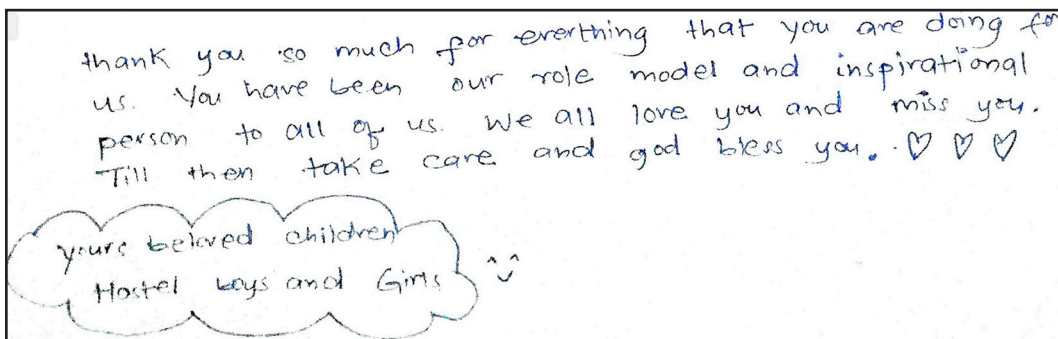 thank you so much for ererthing that you are doing for
us. You have been our role model and inspirational
person to all of us. We all love you and miss you.
Till then take care and god bless you. ♡ ♡ ♡
yours beloved children
Hostel boys and Girls